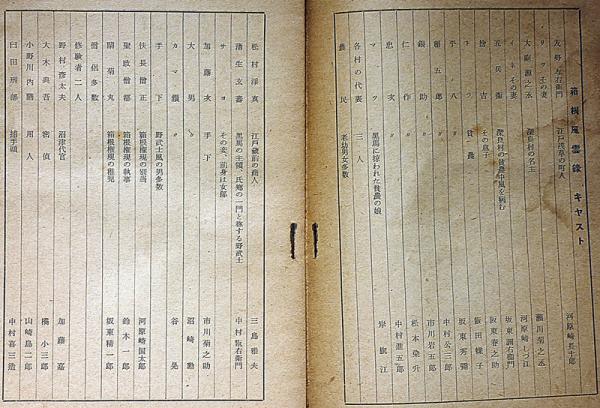 箱根風雲録 キャスト
友野与右衛門 江戸浅草の町人 河原崎長十郎
リツ その妻 瀬川菊之丞
大庭源之丞 深良村の名主
イネ その妻 河原崎しづ江
五兵衛 深良村の貧農中風を病む 坂東調右衛門
捨吉 その息子 坂東春之助
クラ 貧農 飯田蝶子
平八 〃 坂東秀弥
〃 中村公三郎
銀助 〃 市川岩五郎
仁作 〃 松本染升
忠次 〃 中村進五郎
マツ 黒馬に掠われた貧農の娘 岸旗江
各村の代表 三人
農民 老幼男女多数
松村淨真 江戸蔵前の商人 三島雅夫
蒲生玄蕃 黒馬の主領、氏郷の一門と称する野武士 中村翫右衛門
サヨ その妻、前身は女郎
加藤次 手下 市川菊之助
大男 〃 沼崎勲
カマ鎌 〃 谷晃
手下 野武士風の男多数
快長僧正 箱根権現の別当 河原崎国太郎
聖政僧都 箱根権現の執事 鈴木一郎
晴菊丸 箱根権現の稚児 坂東精一郎
僧侶 多数
修験者 二人
野村彦太夫 沼津代官 加藤嘉
大木典吾 密偵 橘小三郎
小野川内膳 用人 山崎島二郎
臼田刑部 捕手頭 中村喜三造